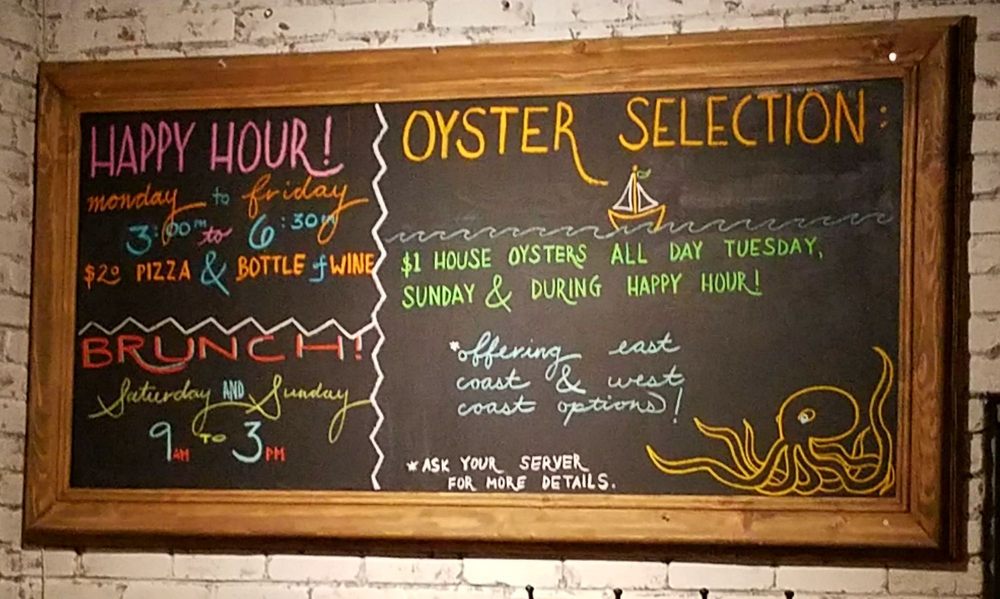 HAPPY HOUR!
monday to friday
3:00PM to 6:30PM
$20 PIZZA & BOTTLE of WINE
BRUNCH!
Saturday AND Sunday
9AM TO 3PM
OYSTER SELECTION:
$1 HOUSE OYSTERS ALL DAY TUESDAY,
SUNDAY & DURING HAPPY HOUR!
*offering east
coast & west
coast options!
*ASK YOUR SERVER
FOR MORE DETAILS.